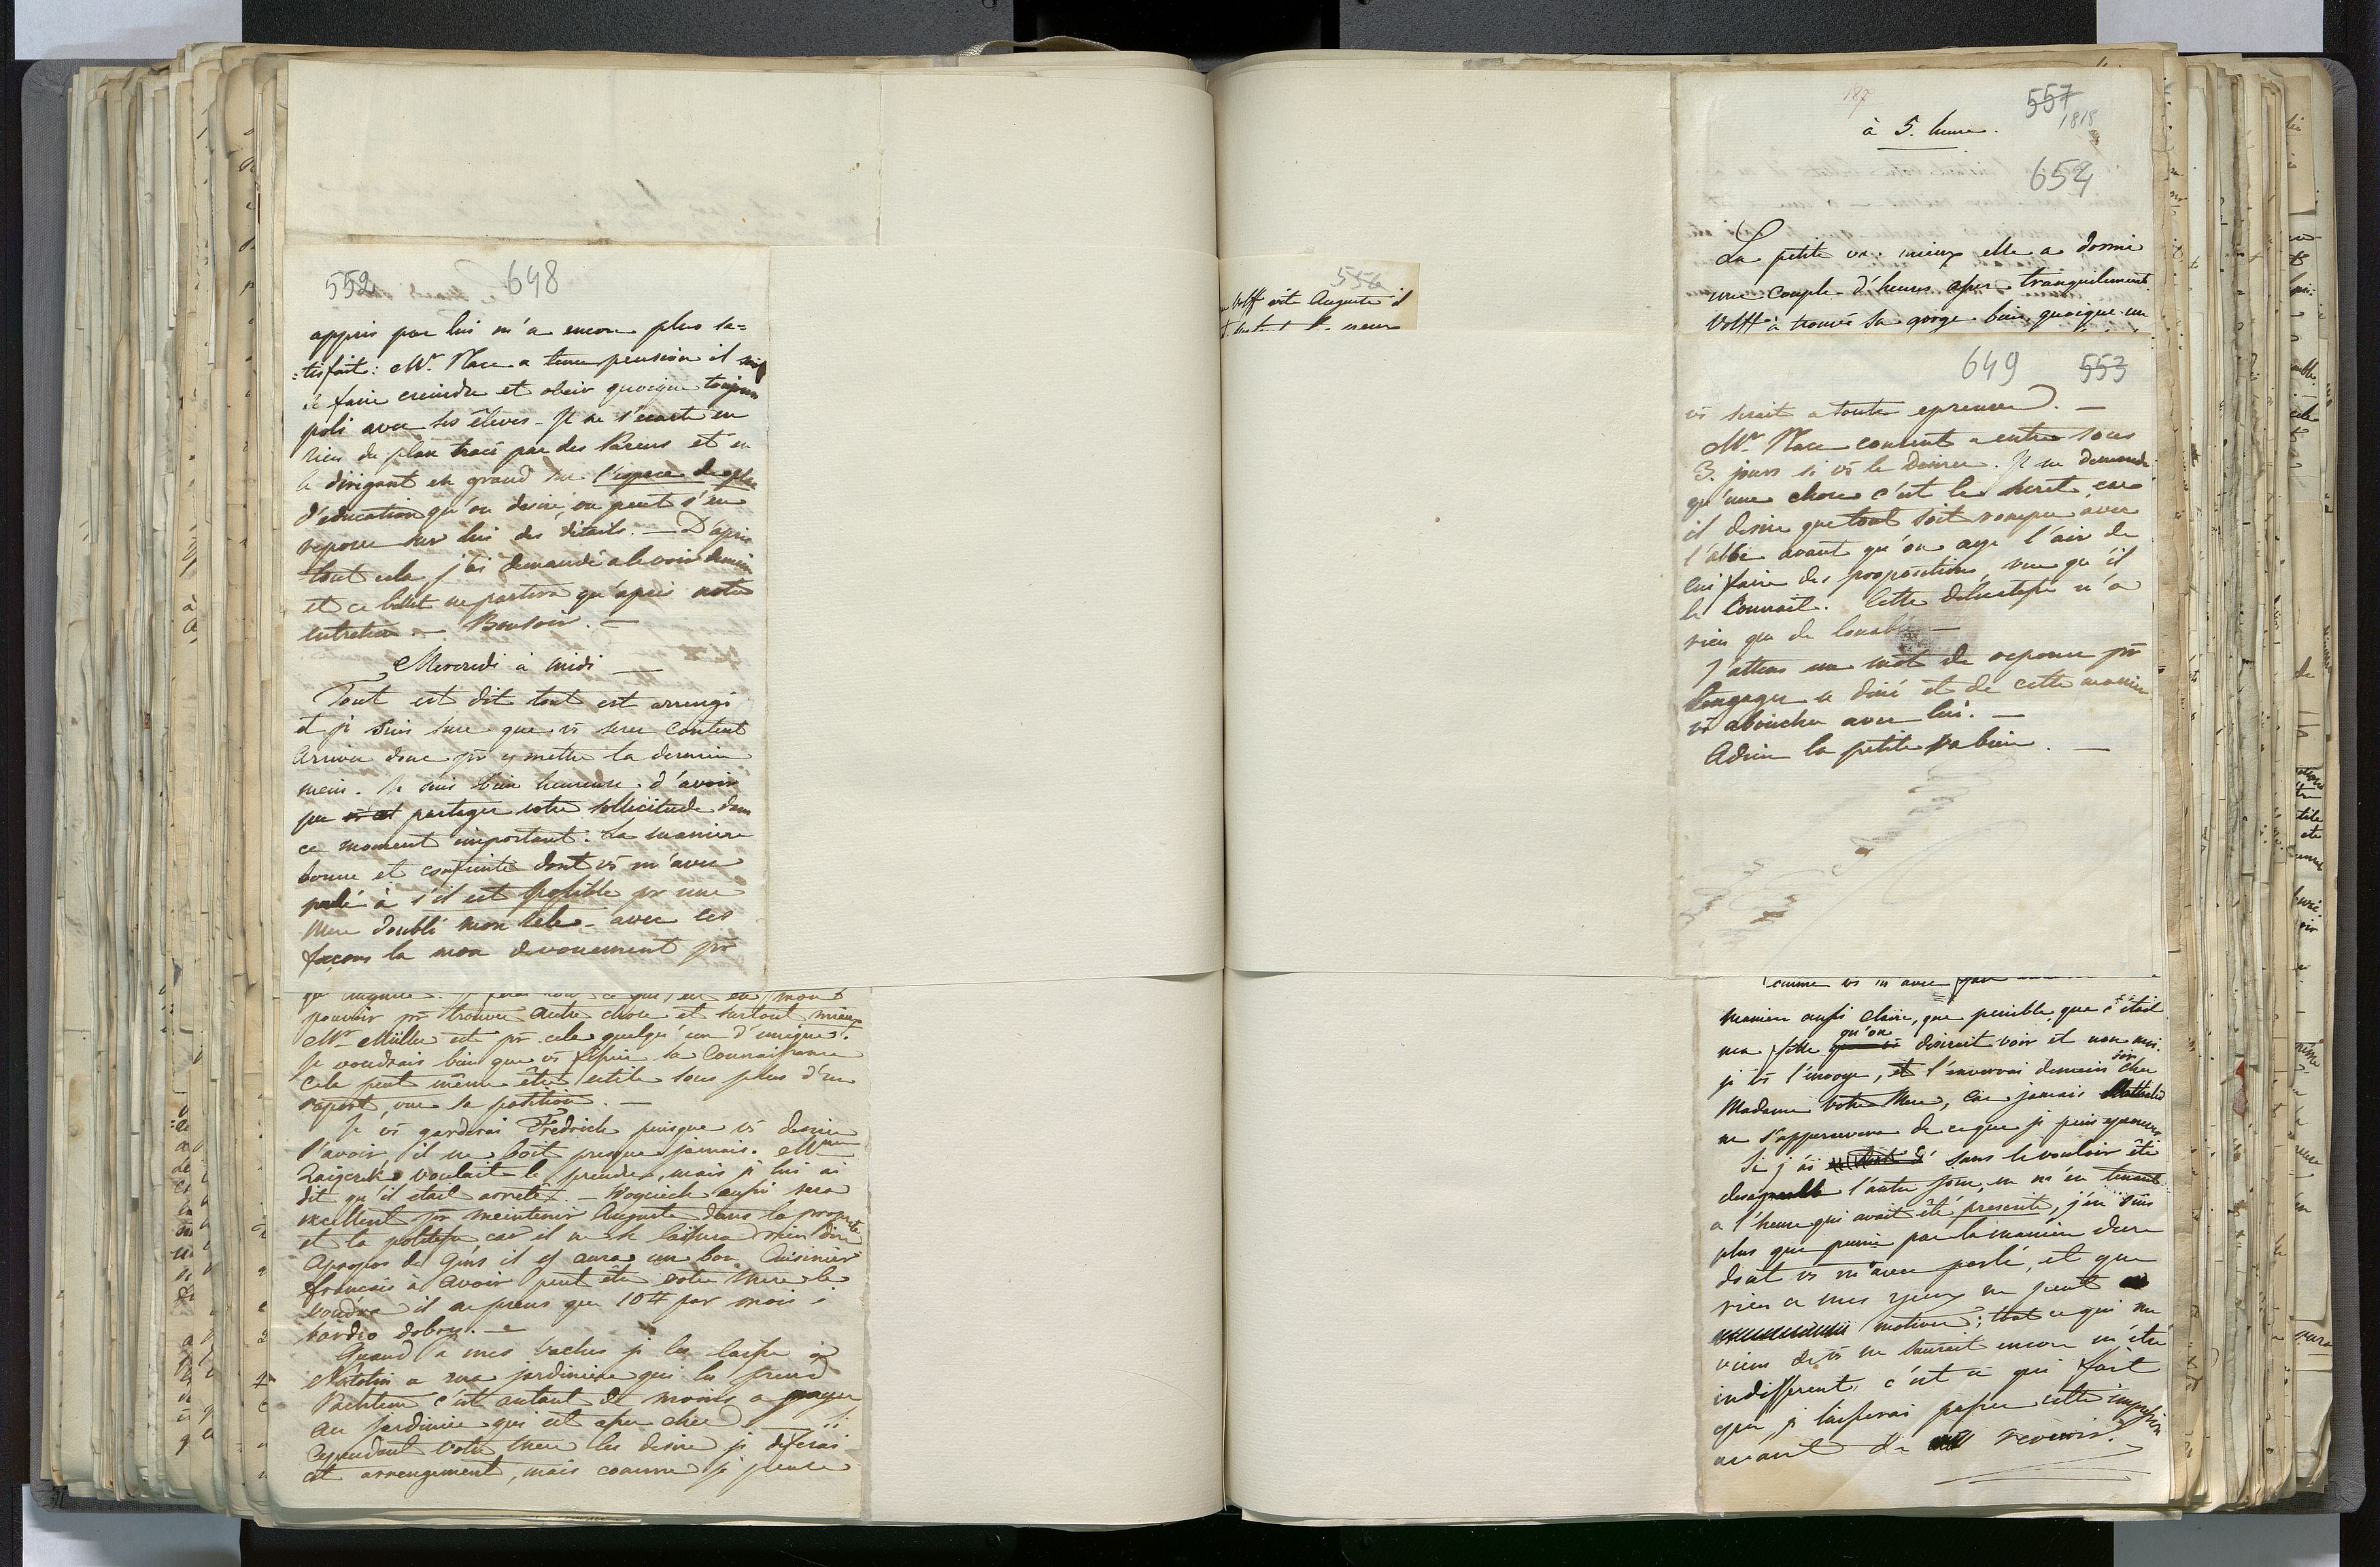 552 648
appris par lui m'a encore plus sa=
=tisfait: Mr. Mace a tenu pension il sait
se faire creindre et obeir quoique toujours
poli avec ses élèves. Il ne s'ecarte en
rien du plan tracé par des Parens et en
le dirigant en grand sur l'espece de plan
d'éducation qu'on desire, on peut s'en
reposer sur lui des détails. — D'après
tout cela j'ai demandé a le voir demain
et ce billet ne partira qu'après notre
entretien. — Bonsoir. —
Mercredi à midi —
Tout est dit tout est arrengé
et je suis sure que vs serez content
Arrivez donc pr y mettre la derniere
mein. Je suis bien heureuse d'avoir
pu partager votre sollicitude dans
ce moment important. La maniere
bonne et confiente dont vs m'avez
parlé à s'il est possible pr une
Mere doublé mon zele. avec ces
façons la mon devouement pr
pouvoir pr trouver autre chose et surtout mieux
Mr. Müller est pr cela quelqu'un d'unique.
Je voudrais bien que vs fissiez sa connaissance
cela peut même être utile sous plus d'un
raport, vue sa position. —
Je vs garderai Fredrich puisque vs desirez
l'avoir, il ne boit presque jamais. Mme
Zaigcrik voulait le prendre, mais je lui ai
dit qu'il etait arreté. — Woyciech aussi sera
excellent pr meintenir Auguste dans la propreté
et la politesse car il ne se laissera rien dire
Apropos de Gens il y aura un bon Cuisinier
français à avoir peut être votre Mere le
voudra il ne prens que 10# par mois;
bardzo dobry. —
Quand à mes vaches je les laisse à
Natolin a ma jardiniere qui les prend
Pachtem c'est autant de moins a payer
au jardinier qui est assez cher si
Cependant votre Mere les desire je deferai
cet arrengement, mais comme je pense
556
Wolff vite Auguste il
187
557
1818
à 5. heure.
654
La petite va mieux elle a dormi
une couple d'heures assez tranquilement.
Wolff à trouvé sa gorge bien, quoique un
649 553
vs serait a toute epreuve. —
Mr. Mace consent a entrer sous
3. jours si vs le desirez. Il ne demande
qu'une chose c'est le secret, car
il desire que tout soit rompu avec
l'abbé avant qu'on aye l'air de
lui faire des propositions, vue qu'il
le connait. Cette délicatesse n'a
rien que de louable —
J'attens un mot de reponse pr
l'engager a diné et de cette maniere
vs aboucher avec lui. —
Adieu la petite va bien. —
comme vs m'avez
maniere aussi claire, que penible, que c'était
ma fille qu'on desirait voir et non moi.
je vs l'envoye, et l'enverrai demein soir chez
Madame votre Mere, car jamais Nathalie
ne s'appercevra de ce que je puis eprouver
Si j'ai sans le vouloir été
desagreable l'autre jour, en m'en tenant
a l'heure qui avait été presente, j'en suis
plus que punie par la maniere dure
dont vs m'avez parlé, et que
rien a mes yeux ne peut
motiver; tout ce qui me
viens de vs ne saurait encore m'être
indifferent, c'est ce qui fait
que je laisserai passer cette impression
avant de revenir.